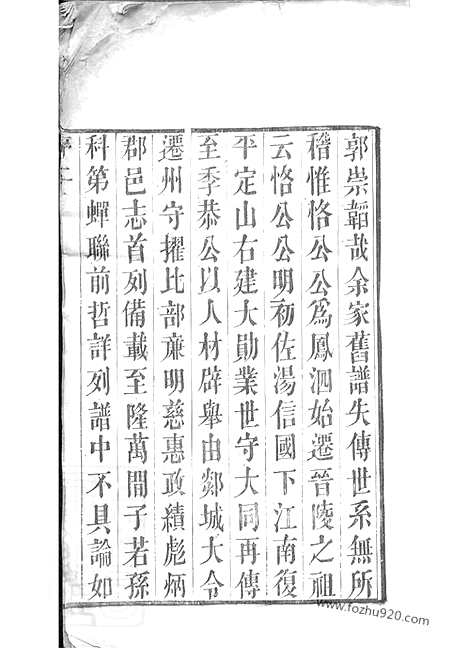 郭崇韜哉余家舊譜失傳世系無所
稽惟恪公公爲鳳泗始遷晉陵之祖
云恪公公明初佐湯信國下江南復
平定山右建大勛業世守大同再傳
至季恭公以人材辟舉由郯城大令
遷州守擢比部亷明慈惠政績彪炳
郡邑志首列備載至隆萬間子若孫
科第蟬聯前哲詳列譜中不具論如
www.fozhu920.com